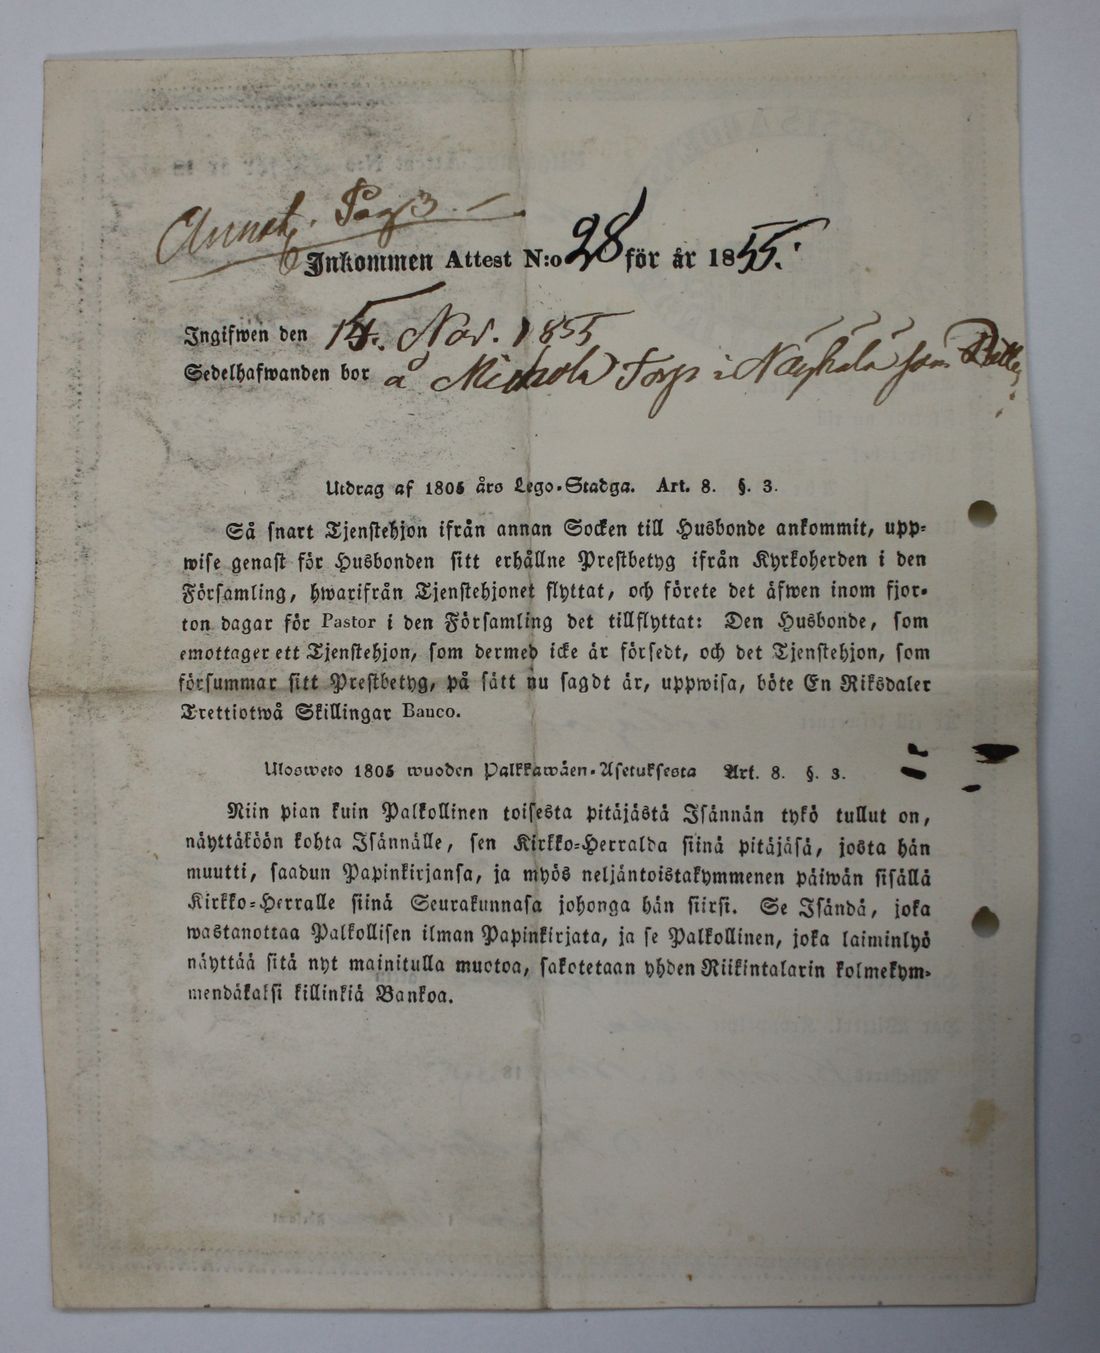 Annot. Pag 3.
Inkommen Attest N:o 28 för år 1855.
Ingifwen den 14. Nov. 1855
Sedelhafwanden bor å Torp i
Utdrag af 1805 års Lego-Stadga. Art. 8. §. 3.
Så snart Tjenstehjon ifrån annan Socken till Husbonde ankommit, upp-
wise genast för Husbonden sitt erhållne Prestbetyg ifrån Kyrkoherden i den
Församling, hwarifrån Tjenstehjonet flyttat, och förete det äfwen inom fjor-
ton dagar för Pastor i den Församling det tillflyttat: Den Husbonde, som
emottager ett Tjenstehjon, som dermed icke är försedt, och det Tjenstehjon, som
försummar sitt Prestbetyg, på sätt nu sagdt är, uppwisa, böte En Riksdaler
Trettiotwå Skillingar Banco.
Ulosweto 1805 wuoden Palkkawäen-Asetuksesta Art. 8. §. 3.
Niin pian kuin Palkollinen toisesta pitäjästä Isännän tykö tullut on,
näyttäköön kohta Isännälle, sen Kirkko-Herralda siinä pitäjäsä, josta hän
muutti, saadun Papinkirjansa, ja myös neljäntoistakymmenen päiwän sisällä
Kirkko-Herralle siinä Seurakunnasa johonga hän siirsi. Se Isändä, joka
wastanottaa Palkollisen ilman Papinkirjata, ja se Palkollinen, joka laiminlyö
näyttää sitä nyt mainitulla muotoa, sakotetaan yhden Riikintalarin kolmekym-
mendäkaksi killinkiä Bankoa.